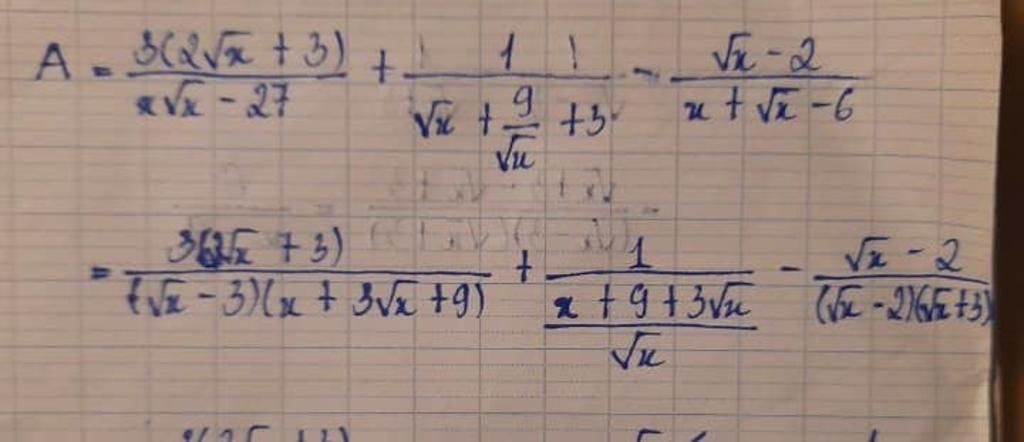 A = \frac{3(2\sqrt{x} + 3)}{x\sqrt{x} - 27} + \frac{1}{\sqrt{x} + \frac{9}{\sqrt{x}} + 3} - \frac{\sqrt{x} - 2}{x + \sqrt{x} - 6}
= \frac{3(2\sqrt{x} + 3)}{(\sqrt{x} - 3)(x + 3\sqrt{x} + 9)} + \frac{1}{\frac{x + 9 + 3\sqrt{x}}{\sqrt{x}}} - \frac{\sqrt{x} - 2}{(\sqrt{x} - 2)(\sqrt{x} + 3)}